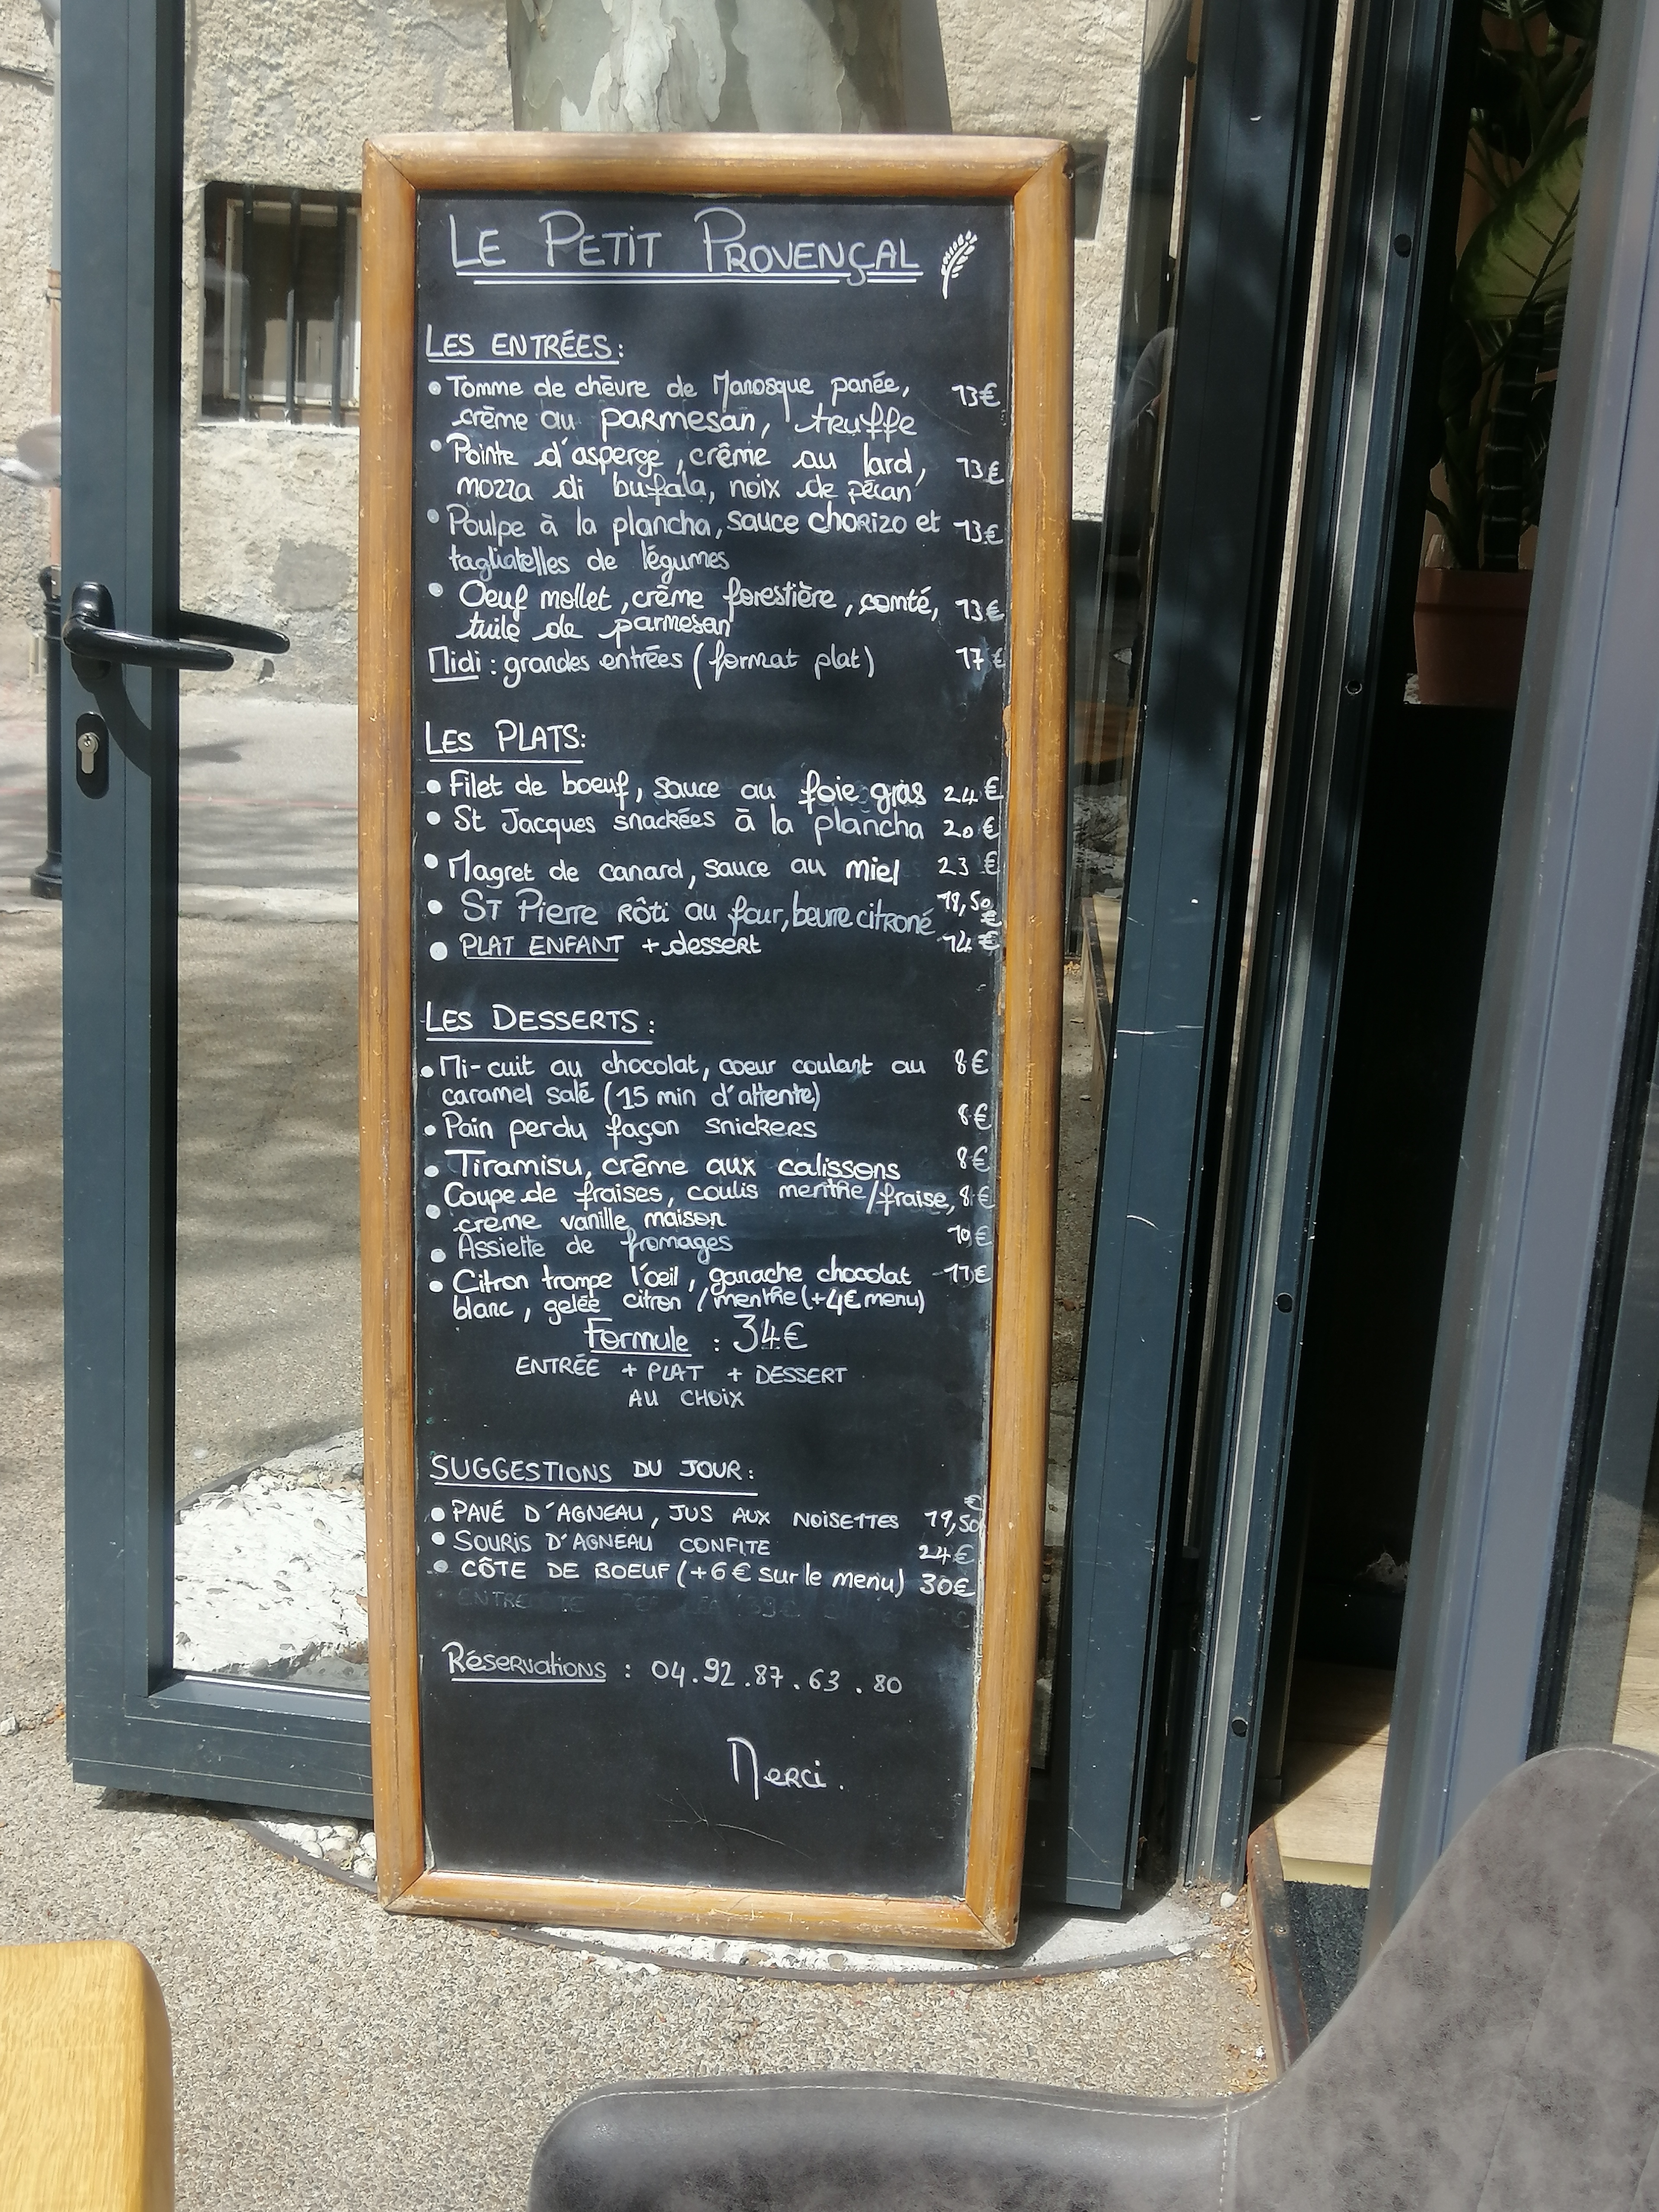 LE PETIT PROVENÇAL
LES ENTRÉES:
• Tomme de chèvre de Manosque panée, 13€
crème au parmesan, truffe
• Pointe d'asperge, crème au lard, 13€
mozza di bufala, noix de pécan
• Poulpe à la plancha, sauce chorizo et 13€
tagliatelles de légumes
• Oeuf mollet, crème forestière, comté, 13€
tuile de parmesan
Midi : grandes entrées (format plat) 17€
LES PLATS:
• Filet de boeuf, sauce au foie gras 24€
• St Jacques snackées à la plancha 20€
• Magret de canard, sauce au miel 23€
• ST Pierre rôti au four, beurre citroné 18,50€
• PLAT ENFANT + dessert 14€
LES DESSERTS :
• Mi-cuit au chocolat, coeur coulant au 8€
caramel salé (15 min d'attente)
• Pain perdu façon snickers 8€
• Tiramisu, crème aux calissons 8€
• Coupe de fraises, coulis menthe/fraise, 8€
creme vanille maison
• Assiette de fromages 10€
• Citron trompe l'oeil, ganache chocolat 11€
blanc, gelée citron / menthe (+4€ menu)
Formule : 34€
ENTRÉE + PLAT + DESSERT
AU CHOIX
SUGGESTIONS DU JOUR :
• PAVÉ D'AGNEAU, JUS AUX NOISETTES 19,50€
• SOURIS D'AGNEAU CONFITE 24€
• CÔTE DE BOEUF (+6€ sur le menu) 30€
Réservations : 04.92.87.63.80
Merci.